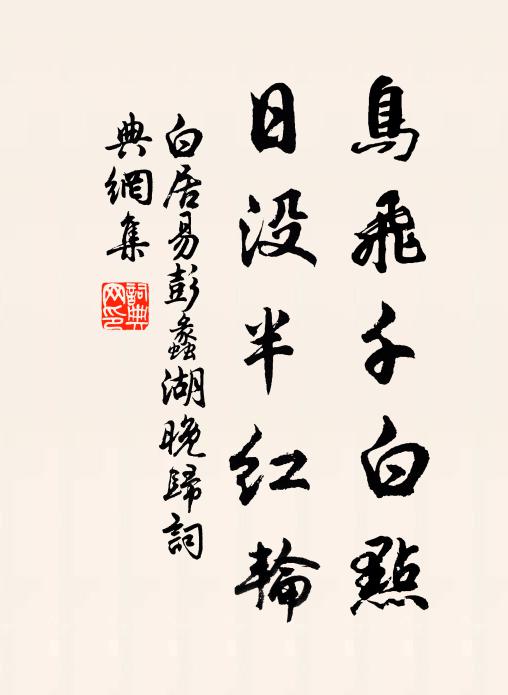 鳥飛千白點
日没半紅輪
白居易彭蠡湖晚歸詞
典網集
詞典
网印